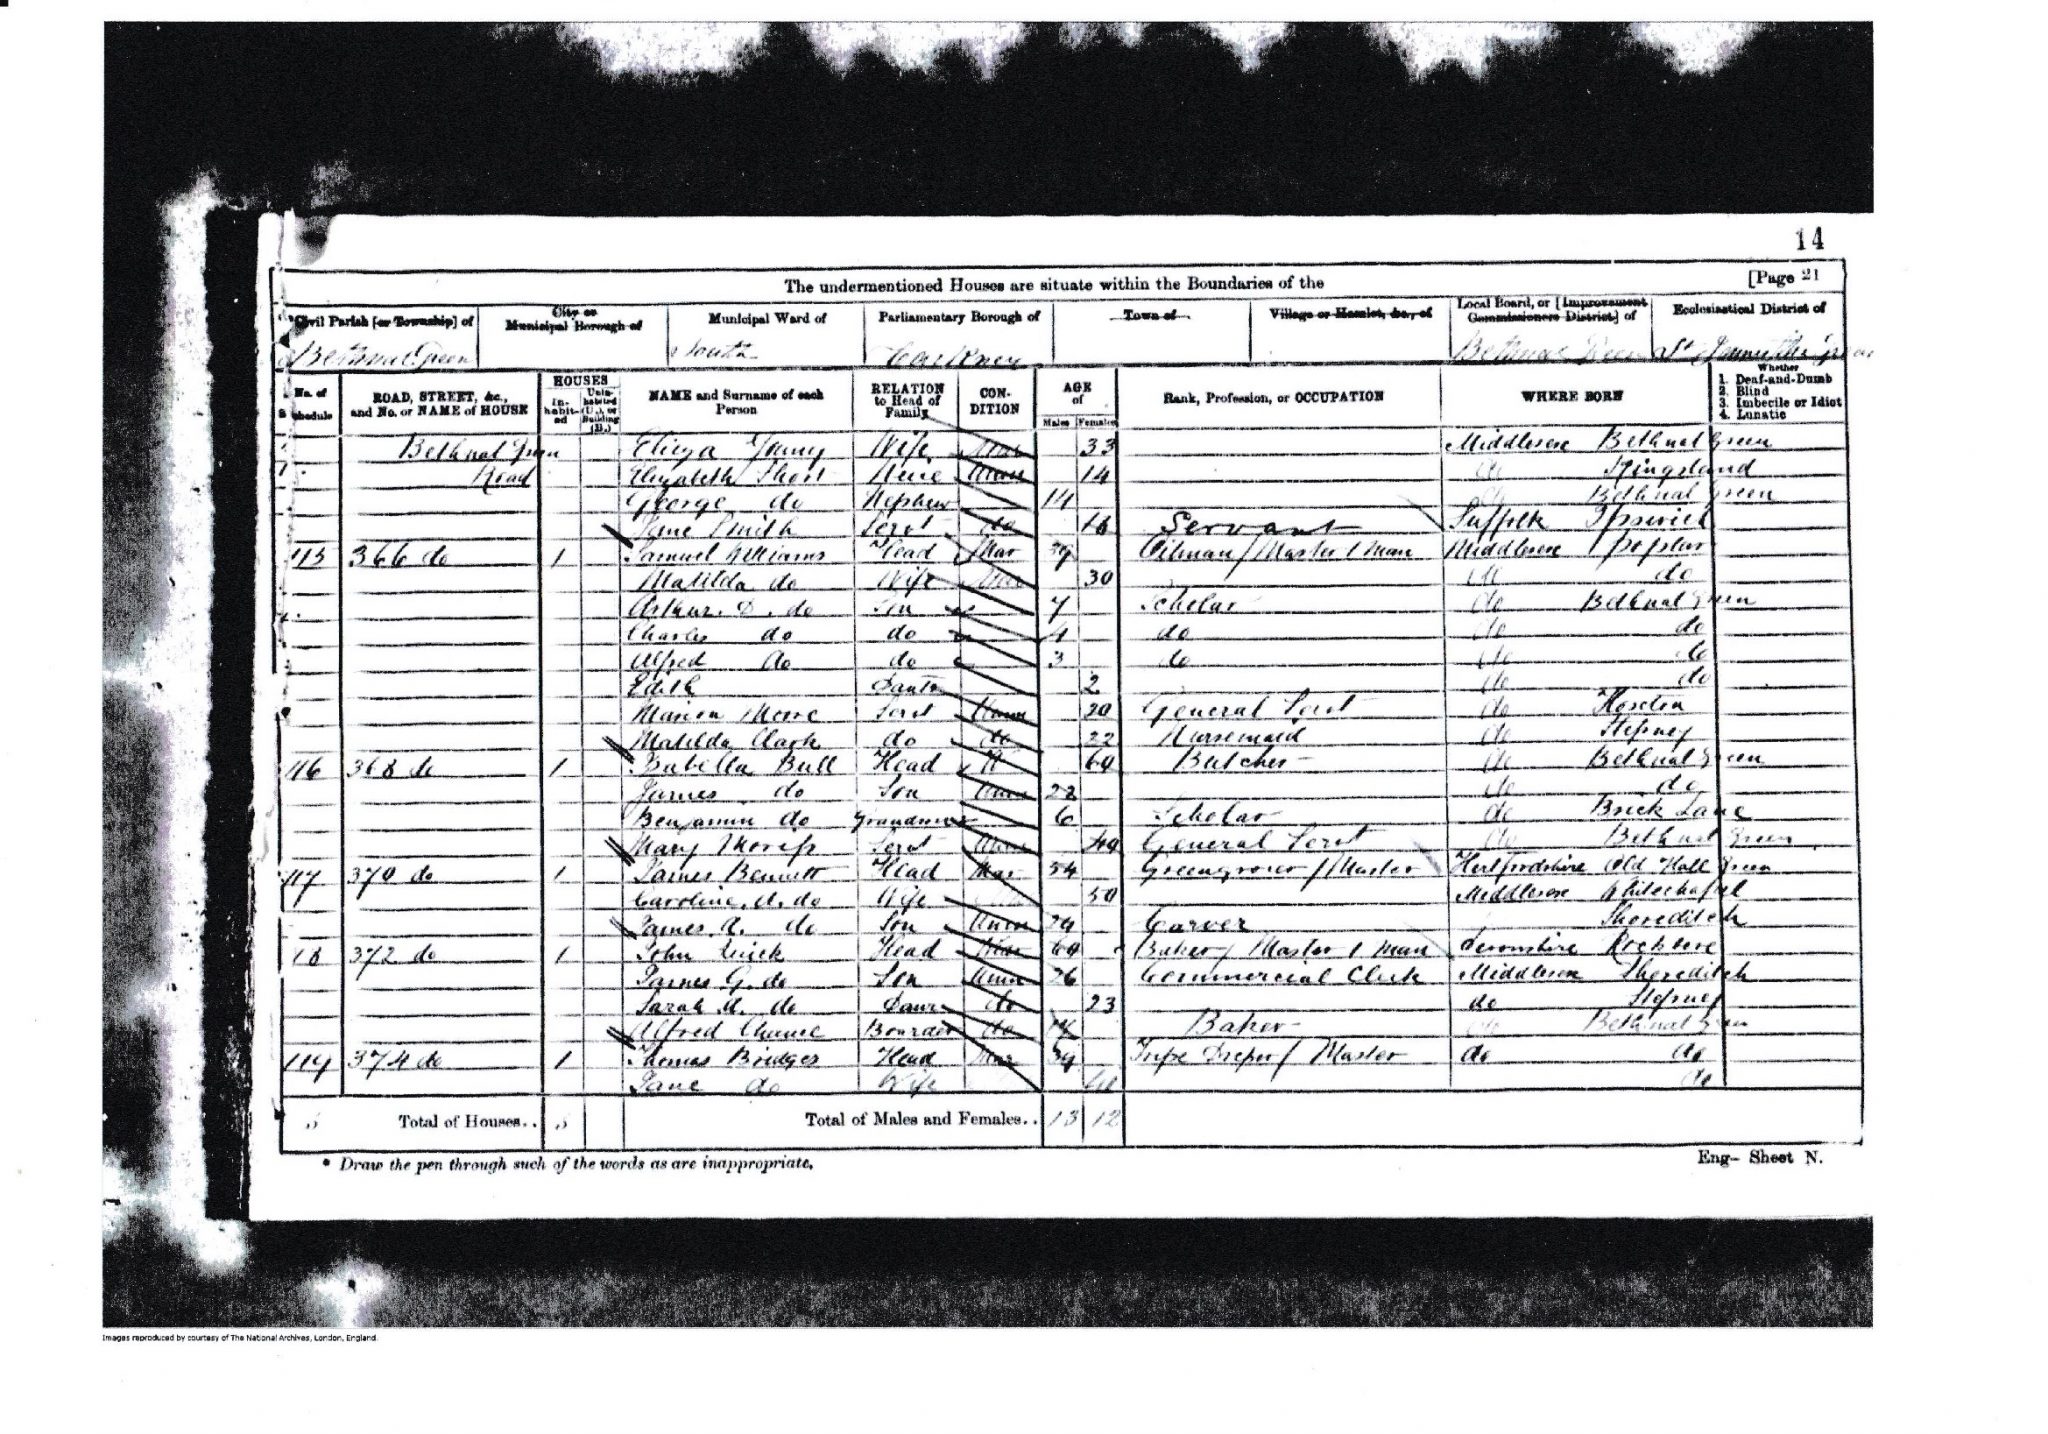 14
The undermentioned Houses are situate within the Boundaries of the [Page 21
Civil Parish [or Township] of City or Municipal Borough of Municipal Ward of Parliamentary Borough of Town of Village or Hamlet, &c., of Local Board, or [Improvement Commissioners District] of Ecclesiastical District of
Bethnal Green South Hackney Bethnal Green St
No. of Schedule ROAD, STREET, &c., and No. or NAME of HOUSE HOUSES In-habit-ed Unin-habited (U.), or Building (B.) NAME and Surname of each Person RELATION to Head of Family CON-DITION AGE of Males Females Rank, Profession, or OCCUPATION WHERE BORN Whether 1. Deaf-and-Dumb 2. Blind 3. Imbecile or Idiot 4. Lunatic
Bethnal Green Eliza Young Wife Mar 33 Middlesex Bethnal Green
Road Elizabeth Short Niece Unm 14 do Kingsland
George do Nephew 14 do Bethnal Green
Jane Smith Servt do 16 Servant Suffolk Ipswich
115 366 do 1 Samuel Williams Head Mar 39 Oilman / Master 1 Man Middlesex Poplar
Matilda do Wife Mar 30 do do
Arthur. D. do Son 7 Scholar do Bethnal Green
Charles do do 4 do do do
Alfred do do 3 do do do
Edith Daur 2 do do
Marion Moore Servt Unm 20 General Servt do Hoxton
Matilda Clark do do 22 Nursemaid do Stepney
116 368 do 1 Isabella Bull Head W 60 Butcher do Bethnal Green
James do Son Unm 22 do do
Benjamin do Grandson 6 Scholar do Brick Lane
Mary Servt Unm 40 General Servt do Bethnal Green
117 370 do 1 James Bennett Head Mar 54 Greengrocer / Master Hertfordshire Old Hall Green
Caroline. A. do Wife 50 Middlesex Whitechapel
James. R. do Son Unm 29 Carver Shoreditch
118 372 do 1 John Quick Head 60 Baker / Master 1 man Devonshire Rockbere
James G. do Son Unm 26 Commercial Clerk Middlesex Shoreditch
Sarah A. do Daur do 23 do Stepney
Alfred Boarder do Baker do Bethnal Green
119 374 do 1 Thomas Bridges Head Mar 39 Tripe Dresser / Master do do
Jane do Wife 40 do
5 Total of Houses.. 5 Total of Males and Females.. 13 12
* Draw the pen through such of the words as are inappropriate.
Eng- Sheet N.
Images reproduced by courtesy of The National Archives, London, England.